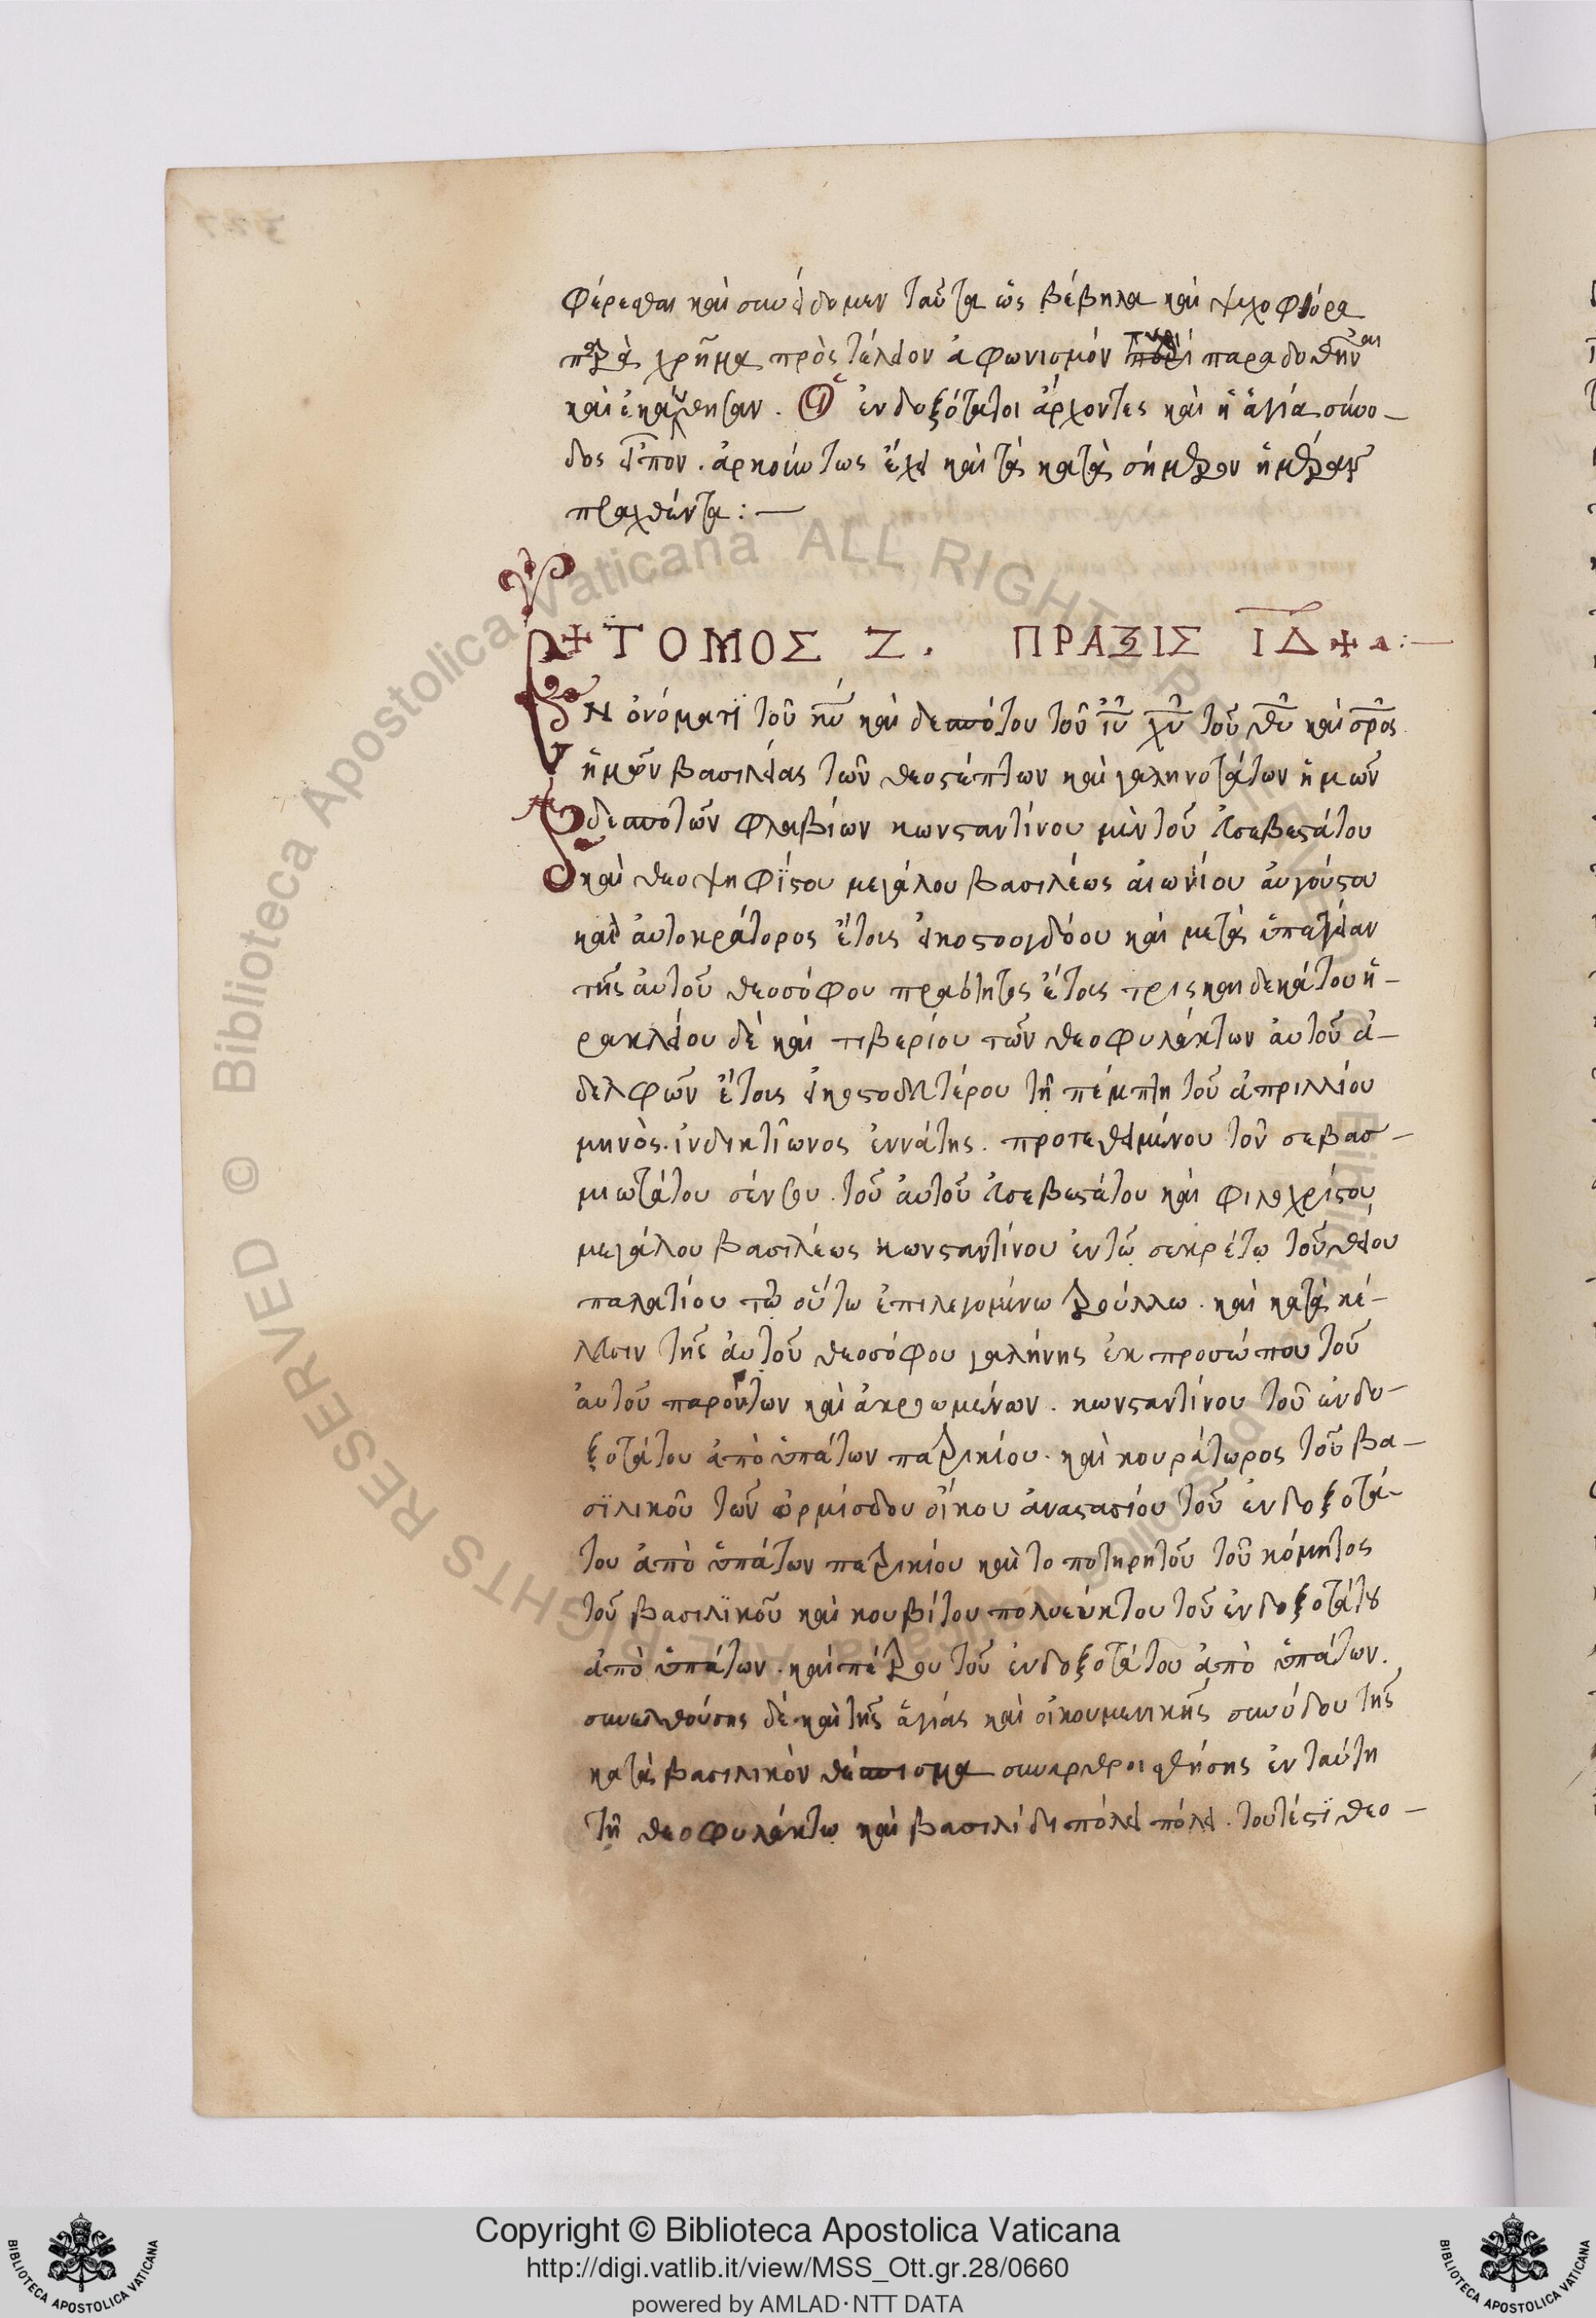 φέρεσθαι καὶ συνείδομεν ταῦτα ὡς βέβηλα καὶ ψυχοφθόρα
παρὰ χρῆμα πρὸς τέλειον ἀφωνισμόν πυρί παραδοθῆναι
καὶ ἐκαύθησαν. Οἱ ἐνδοξότατοι ἄρχοντες καὶ ἡ ἁγία σύνο-
δος εἶπον. ἀρκούντως ἔχει καὶ τὰ κατὰ σήμερον ἡμέραν
πραχθέντα:—
+ ΤΟΜΟΣ Ζ. ΠΡΑΞΙΣ ΙΔ +
Ἐν ὀνόματϊ τοῦ κυ καὶ δεσπότου τοῦ ιυ χυ τοῦ θυ καὶ σρος
ἡμῶν βασιλείας τῶν θεοςέπτων καὶ γαληνοτάτων ἡμῶν
δεσποτῶν φλαβίων κωνσταντίνου μὲν τοῦ εὐσεβεστάτου
καὶ θεοψηφΐστου μεγάλου βασιλέως αἰωνίου αὐγούστου
καὶ αὐτοκράτορος ἔτους εἰκοστοογδόου καὶ μετὰ ὑπατείαν
τῆς αὐτοῦ θεοσόφου πραότητος ἔτους τριςκαιδεκάτου ἡ-
ρακλείου δὲ καὶ τιβερίου τῶν θεοφυλάκτων αὐτοῦ ἀ-
δελφῶν ἔτους εἰκοστοδευτέρου τῇ πέμπτη τοῦ ἀπριλλίου
μηνὸς. ἰνδικτϊῶνος ἐννάτης. προτεθειμένου τοῦ σεβασ-
μιωτάτου σέντου. τοῦ αὐτοῦ εὐσεβεστάτου καὶ φιλοχρίστου
μεγάλου βασιλέως κωνσταντίνου ἐν τῷ σεκρέτῳ τοῦ θείου
παλατίου τῷ οὕτω ἐπιλεγομένω τρούλλω. καὶ κατὰ κέ-
λευσιν τῆς αὐτοῦ θεοσόφου γαλήνης ἐκ προσώπου τοῦ
αὐτοῦ παρόντων καὶ ἀκροωμένων. κωνσταντίνου τοῦ ἐνδο-
ξοτάτου ἀπὸ ὑπάτων πατρικίου. καὶ κουράτωρος τοῦ βα-
σϊλικοῦ τῶν ὁρμίσδου οἴκου ἀναστασίου τοῦ ἐνδοξοτά-
του ἀπὸ ὑπάτων πατρικίου καὶ τοποτηρητοῦ τοῦ κόμητος
τοῦ βασιλϊκοῦ καὶ κουβίτου πολυεύκτου τοῦ ἐνδοξοτάτου
ἀπὸ ὑπάτων. καὶ πέτρου τοῦ ἐνδοξοτάτου ἀπὸ ὑπάτων.
συνελθούσης δὲ καὶ τῆς ἁγίας καὶ οἰκουμενικῆς συνόδου τῆς
κατὰ βασιλικὸν θέσπισμα συναρθροισθήσης ἐν ταύτη
τῇ θεοφυλάκτω καὶ βασιλίδι πόλει πόλει. τουτέστϊ θεο-
Copyright © Biblioteca Apostolica Vaticana
http://digi.vatlib.it/view/MSS_Ott.gr.28/0660
powered by AMLAD·NTT DATA